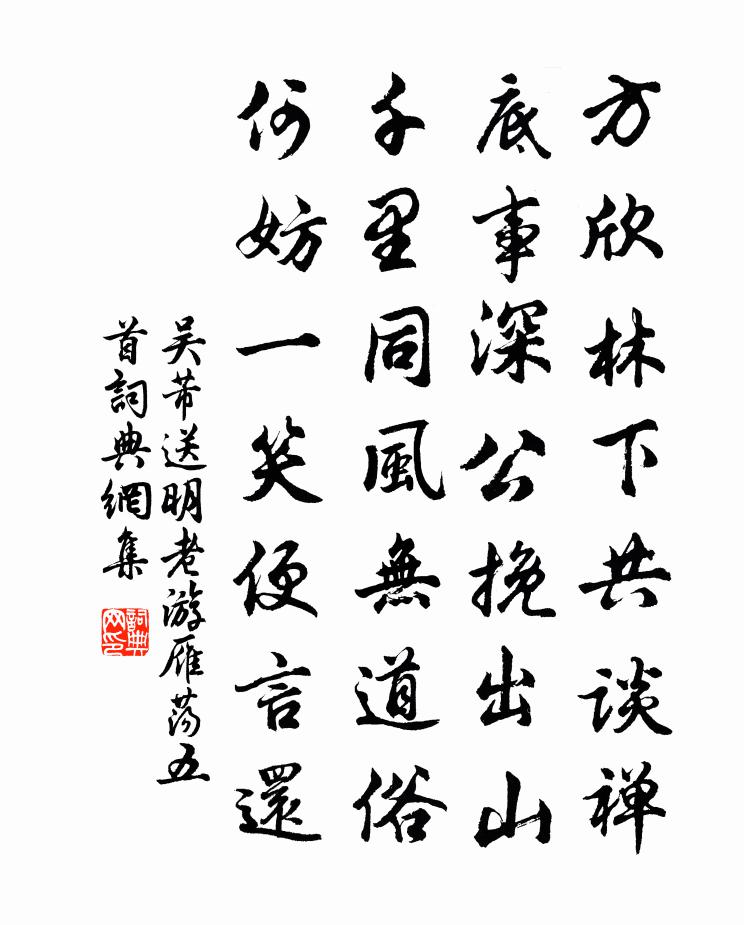 方欣林下共谈禅
底事深公挽出山
千里同風無道俗
何妨一笑便言還
吴芾送明老游雁荡五
首詞典網集
詞典
网印